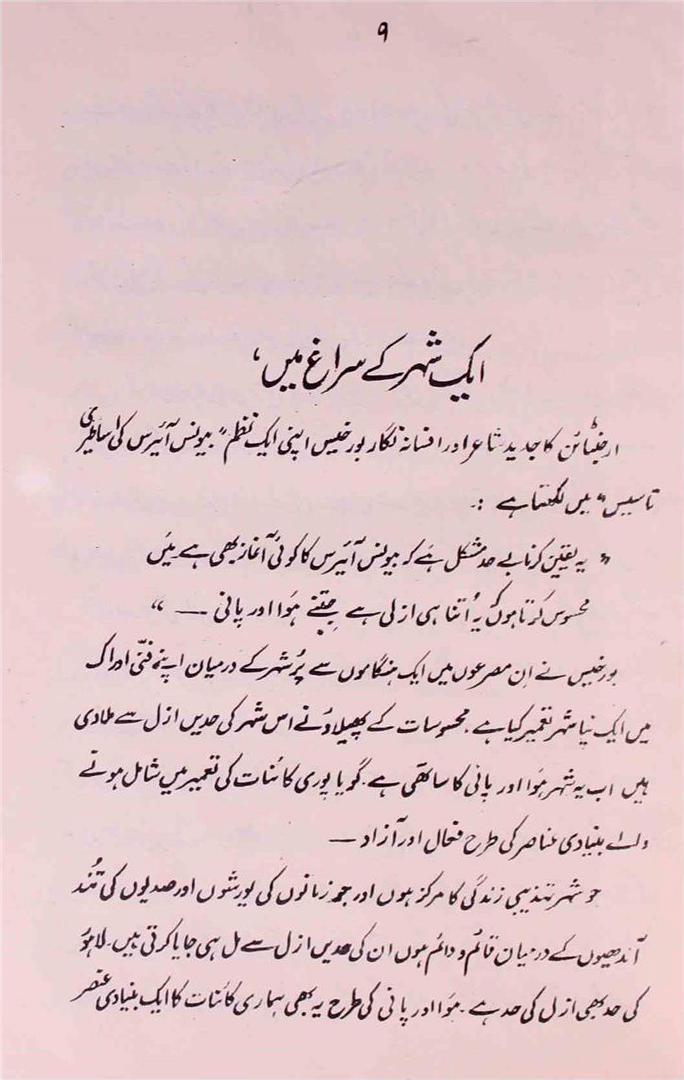 ۹
ایک شہر کے سراغ میں،
ارجنٹائن کا جدید شاعر اور افسانہ نگار بورخیس اپنی ایک نظم " بیونس آئیرس کی اساطیری
تاسیس " میں لکھتا ہے :۔
" یہ یقین کرنا بے حد مشکل ہے کہ بیونس آئیرس کا کوئی آغاز بھی ہے میں
محسوس کرتا ہوں کہ یہ اُتنا ہی ازلی ہے جتنے ہَوا اور پانی ــــ "
بورخیس نے اِن مصرعوں میں ایک ہنگاموں سے پُر شہر کے درمیان اپنے فنّی ادراک
میں ایک نیا شہر تعمیر کیا ہے ۔ محسوسات کے پھیلاؤ نے اس شہر کی حدیں ازل سے ملا دی
ہیں اب یہ شہر ہَوا اور پانی کا ساتھی ہے ۔ گویا پوری کائنات کی تعمیر میں شامل ہونے
والے بنیادی عناصر کی طرح فعال اور آزاد ــــ
جو شہر تہذیبی زندگی کا مرکز ہوں اور جو زمانوں کی یورشوں اور صدیوں کی تُند
آندھیوں کے درمیان قائم و دائم ہوں ان کی حدیں ازل سے مل ہی جایا کرتی ہیں ۔ لاہور
کی حد بھی ازل کی حد ہے ۔ ہوا اور پانی کی طرح یہ بھی ہماری کائنات کا ایک بنیادی عنصر